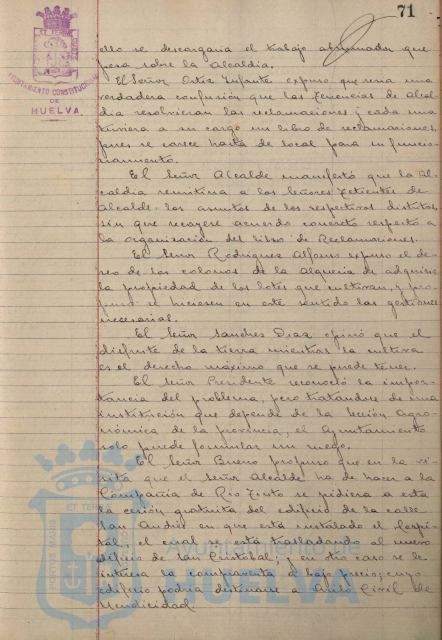 71
AYUNTAMIENTO CONSTITUCIONAL
DE
HUELVA
ello se descargaria el trabajo abrumador que
pesa sobre la Alcaldía.
El Señor Ortiz Infante expuso que seria una
verdadera confusión que las Tenencias de Alcal-
dia resolvieran las reclamaciones y cada una
tuviera a su cargo un libro de reclamaciones,
pues se carece hasta de local para su funcio-
namiento.
El Señor Alcalde manifestó que la Al-
caldia remitiria a los Señores Tenientes de
Alcalde los asuntos de los respectivos distritos,
sin que recayese acuerdo concreto respecto a
la organización del libro de Reclamaciones.
El Señor Rodriguez Alfonso expuso el de-
seo de los colonos de la Alqueria de adquirir
la propiedad de los lotes que cultivan, y pro-
puso se hiciesen en este sentido las gestiones
necesarias.
El Señor Sanchez Diaz opinó que el
disfrute de la tierra mientras la cultiva
es el derecho máximo que se puede tener.
El Señor Presidente reconoció la impor-
tancia del problema, pero tratándose de una
institución que depende de la Sección Agro-
nómica de la provincia, el Ayuntamiento
solo puede formular un ruego.
El Señor Bueno propuso que en la vi-
sita que el Señor Alcalde ha de hacer a la
Compañia de Rio Tinto se pidiera a esta
la cesión gratuita del edificio de la calle
San Andrés en que está instalado el Hospi-
tal, el cual se está trasladando al nuevo
edificio de San Cristobal; y en otro caso se
intente la compraventa a bajo precio; cuyo
edificio podria destinarse a Asilo Civil de
Mendicidad.
PORTUS MARIS ET TERRAE
Ayuntamiento de
HUELVA